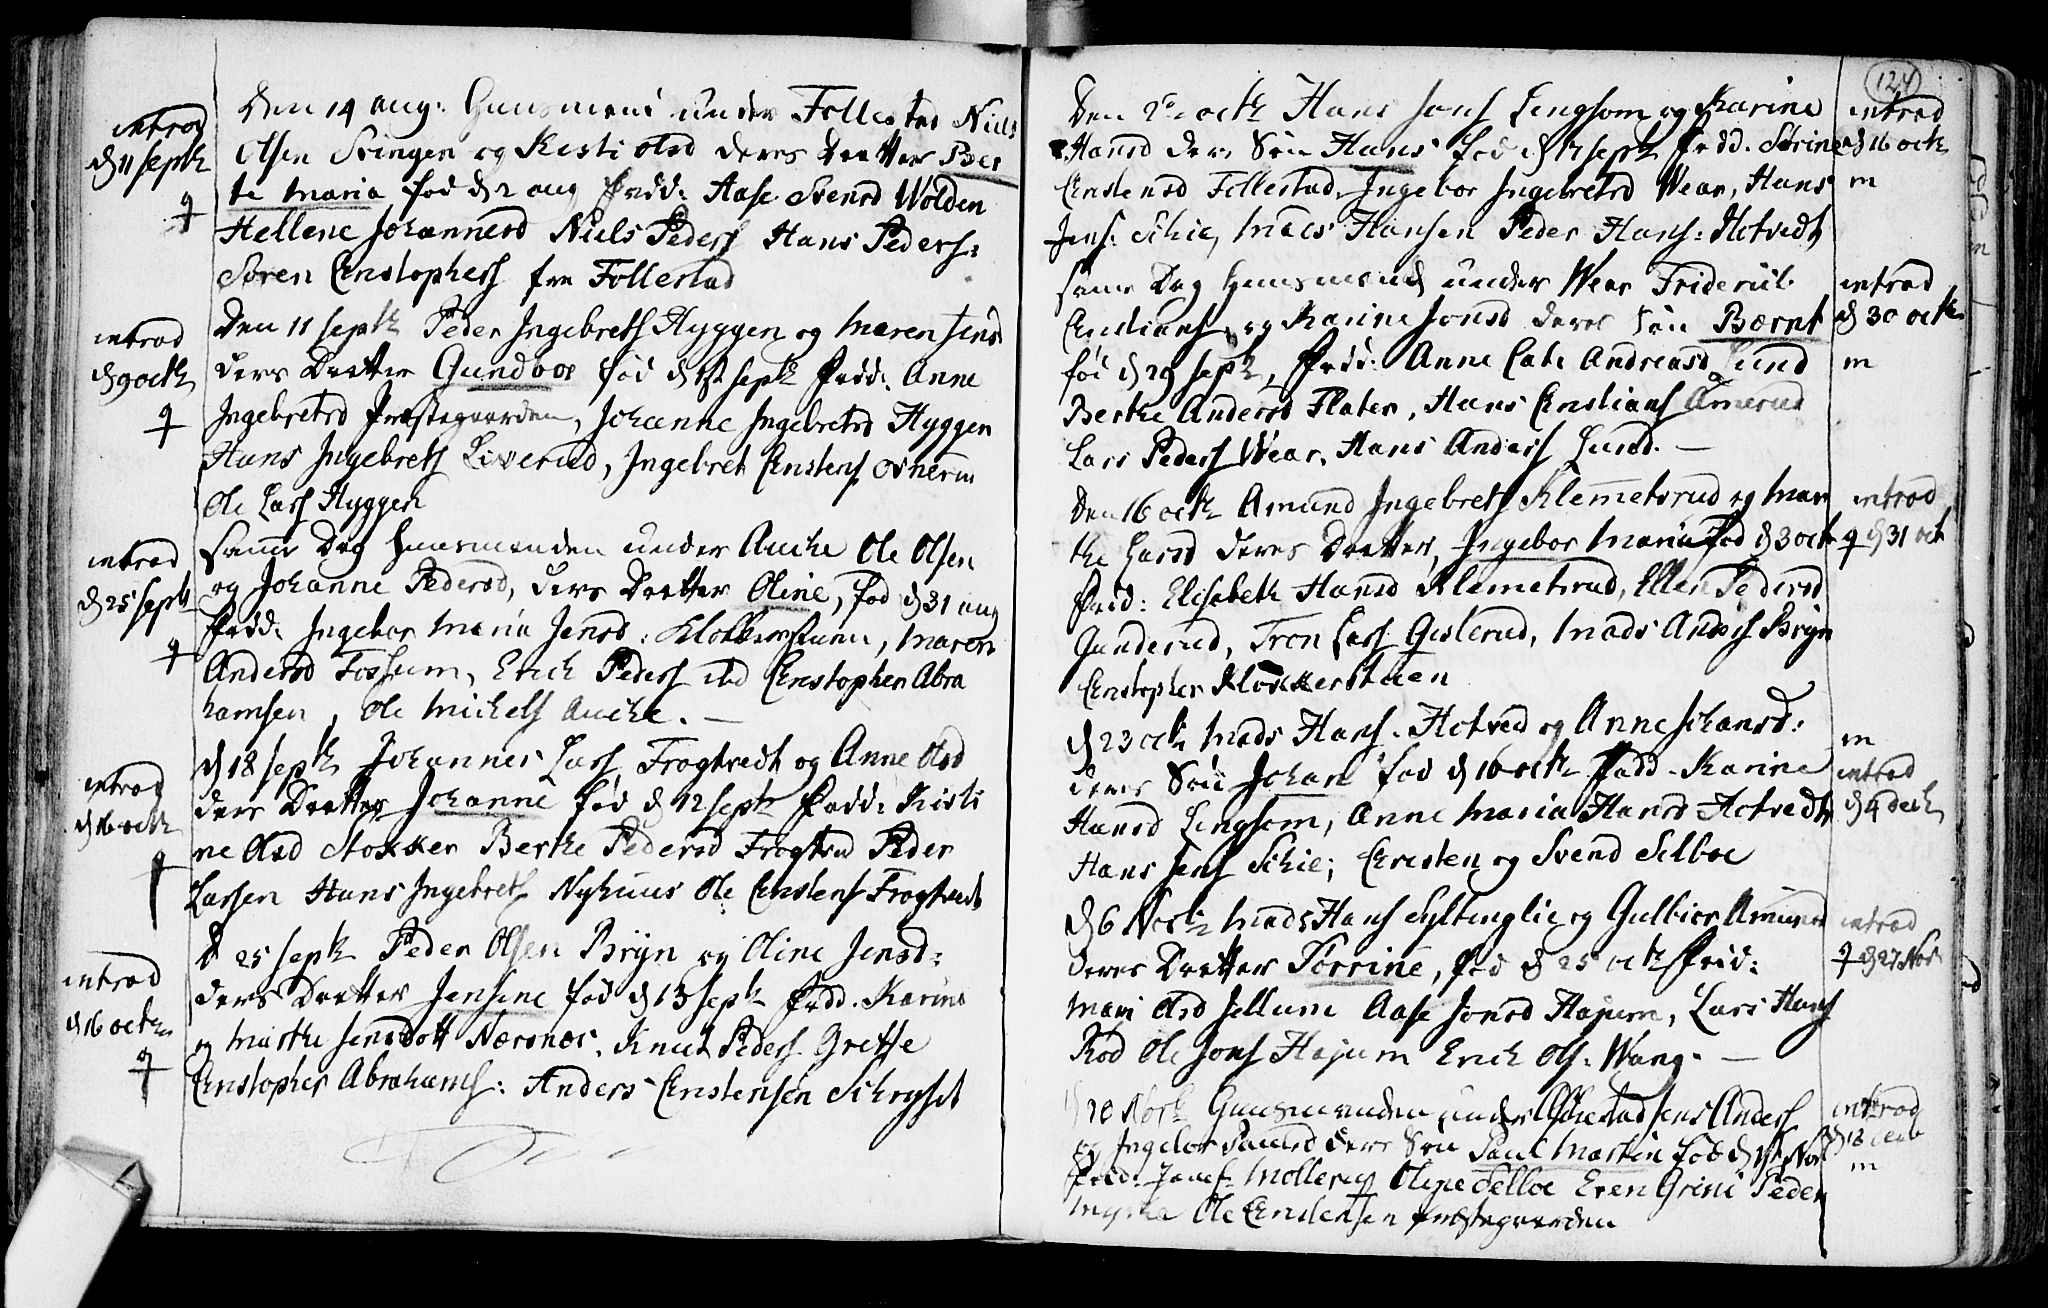 introd
d 11 septbr
Den 14 aug: Huusmend under Follestad Niels
Olsen Svingen og Kisti Olsd deres Dotter Ber
te Maria fod d 2 aug Fadd: Aase Svensd Wolden
Hellene Johannesd Niels Peders Hans Peders:
Søren Christophers fra Follestad
introd
d 9 octbr
Den 11 septbr Peder Ingebrets Hyggen og Maren Jensd
ders Dotter Gundbor fød d septbr Fadd: Anne
Ingebretsd Præstegaarden, Johanne Ingebretsd Hyggen
Hans Ingebrets Liverud, Ingebret Christens
Ole Lars Hyggen
introd
d 25 septbr
samme Dag Huusmanden under Auche Ole Olsen
og Johanne Pedersd, ders Dotter Oline, fød d 31 aug
Fadd: Ingebor Maria Jensd: Klokkerstuen, Maren
Andersd Fossum, Erich Peders ibd Christopher Abra
hamsen, Ole Michels Auche. —
introd
d 16 octbr
d 18 septbr Johannes Lars Frogtvedt og Anne Olsd
ders Dotter Johanne fød d 12 septbr Fadd: Kisti
ne Olsd Stokker Berthe Pedersd Frogtved Peder
Larsen Hans Ingebrets Nyhuus Ole Christens Frogtvedt
introd
d 16 octbr
d 25 septbr Peder Olsen Brÿn og Oline Jensd:
ders Dotter Jensine fød d 13 septbr Fadd. Karine
og Marthe Jensdott Nærsnes, Knud Peders Grette
Christopher Abrahams: Anders Christensen Schryset
124
Den 2 octbr Hans Jons Lengsom og Karine
Hansd ders Søn Hans fød d septbr Fadd. Sørine
Christensd Follestad, Ingebor Ingebretsd Wear, Hans
Jens: Schie, Mads Hansen Peder Hans: Hotvedt
introd
d 16 octbr
m
samme Dag Huusmand under Wear Friderich
Christians og Karine Jonsd deres søn Bærnt
fød d 29 septbr, Fadd: Anne Cate Andreasd Lund
Berthe Andersd Flaten, Hans Christians Amerud
Lars Peders Wear, Hans Anders Lund. —
introd
d 30 octbr
m
Den 16 octbr Amund Ingebrets Klemetsrud og Mar
the Larsd deres Dotter, Ingebor Maria fød d 3 octbr
Fadd: Elisabeth Hansd Klemetsrud, Ellen Pedersd
Gunderud, Tron Lars Gislerud, Mads Anders Brÿn
Christopher Klokkerstuen
introd
d 31 oct
d 23 octbr Mads Hans. Hotved og Anne Johansd:
deres Søn Johan fød d 16 octbr Fadd. Karine
Hansd Lengsom, Anne Maria Hansd Hotvedt
Hans Jens Schie; Christen og Svend Selboe
m
introd
d 4 decbr
d 6 Novbr Mads Hans Syltinglie og Gulbior Amunds
deres Dotter Torrine, fød d 25 octbr Fadd:
Mari Olsd Jellum Aase Jonsd Hajum, Lars Hans
Rød Ole Jons Hajum Erich Ols: Wang. —
introd
d 27 Nov
d 20 Novbr Huusmanden under Jens Anders
og Ingebor Paulsd ders Søn Paul Martin fød d Nov
Fadd: Mollerup Selboe Even Grini Peder
Ole Christensen Præstegaarden
introd
d 18 decb
m